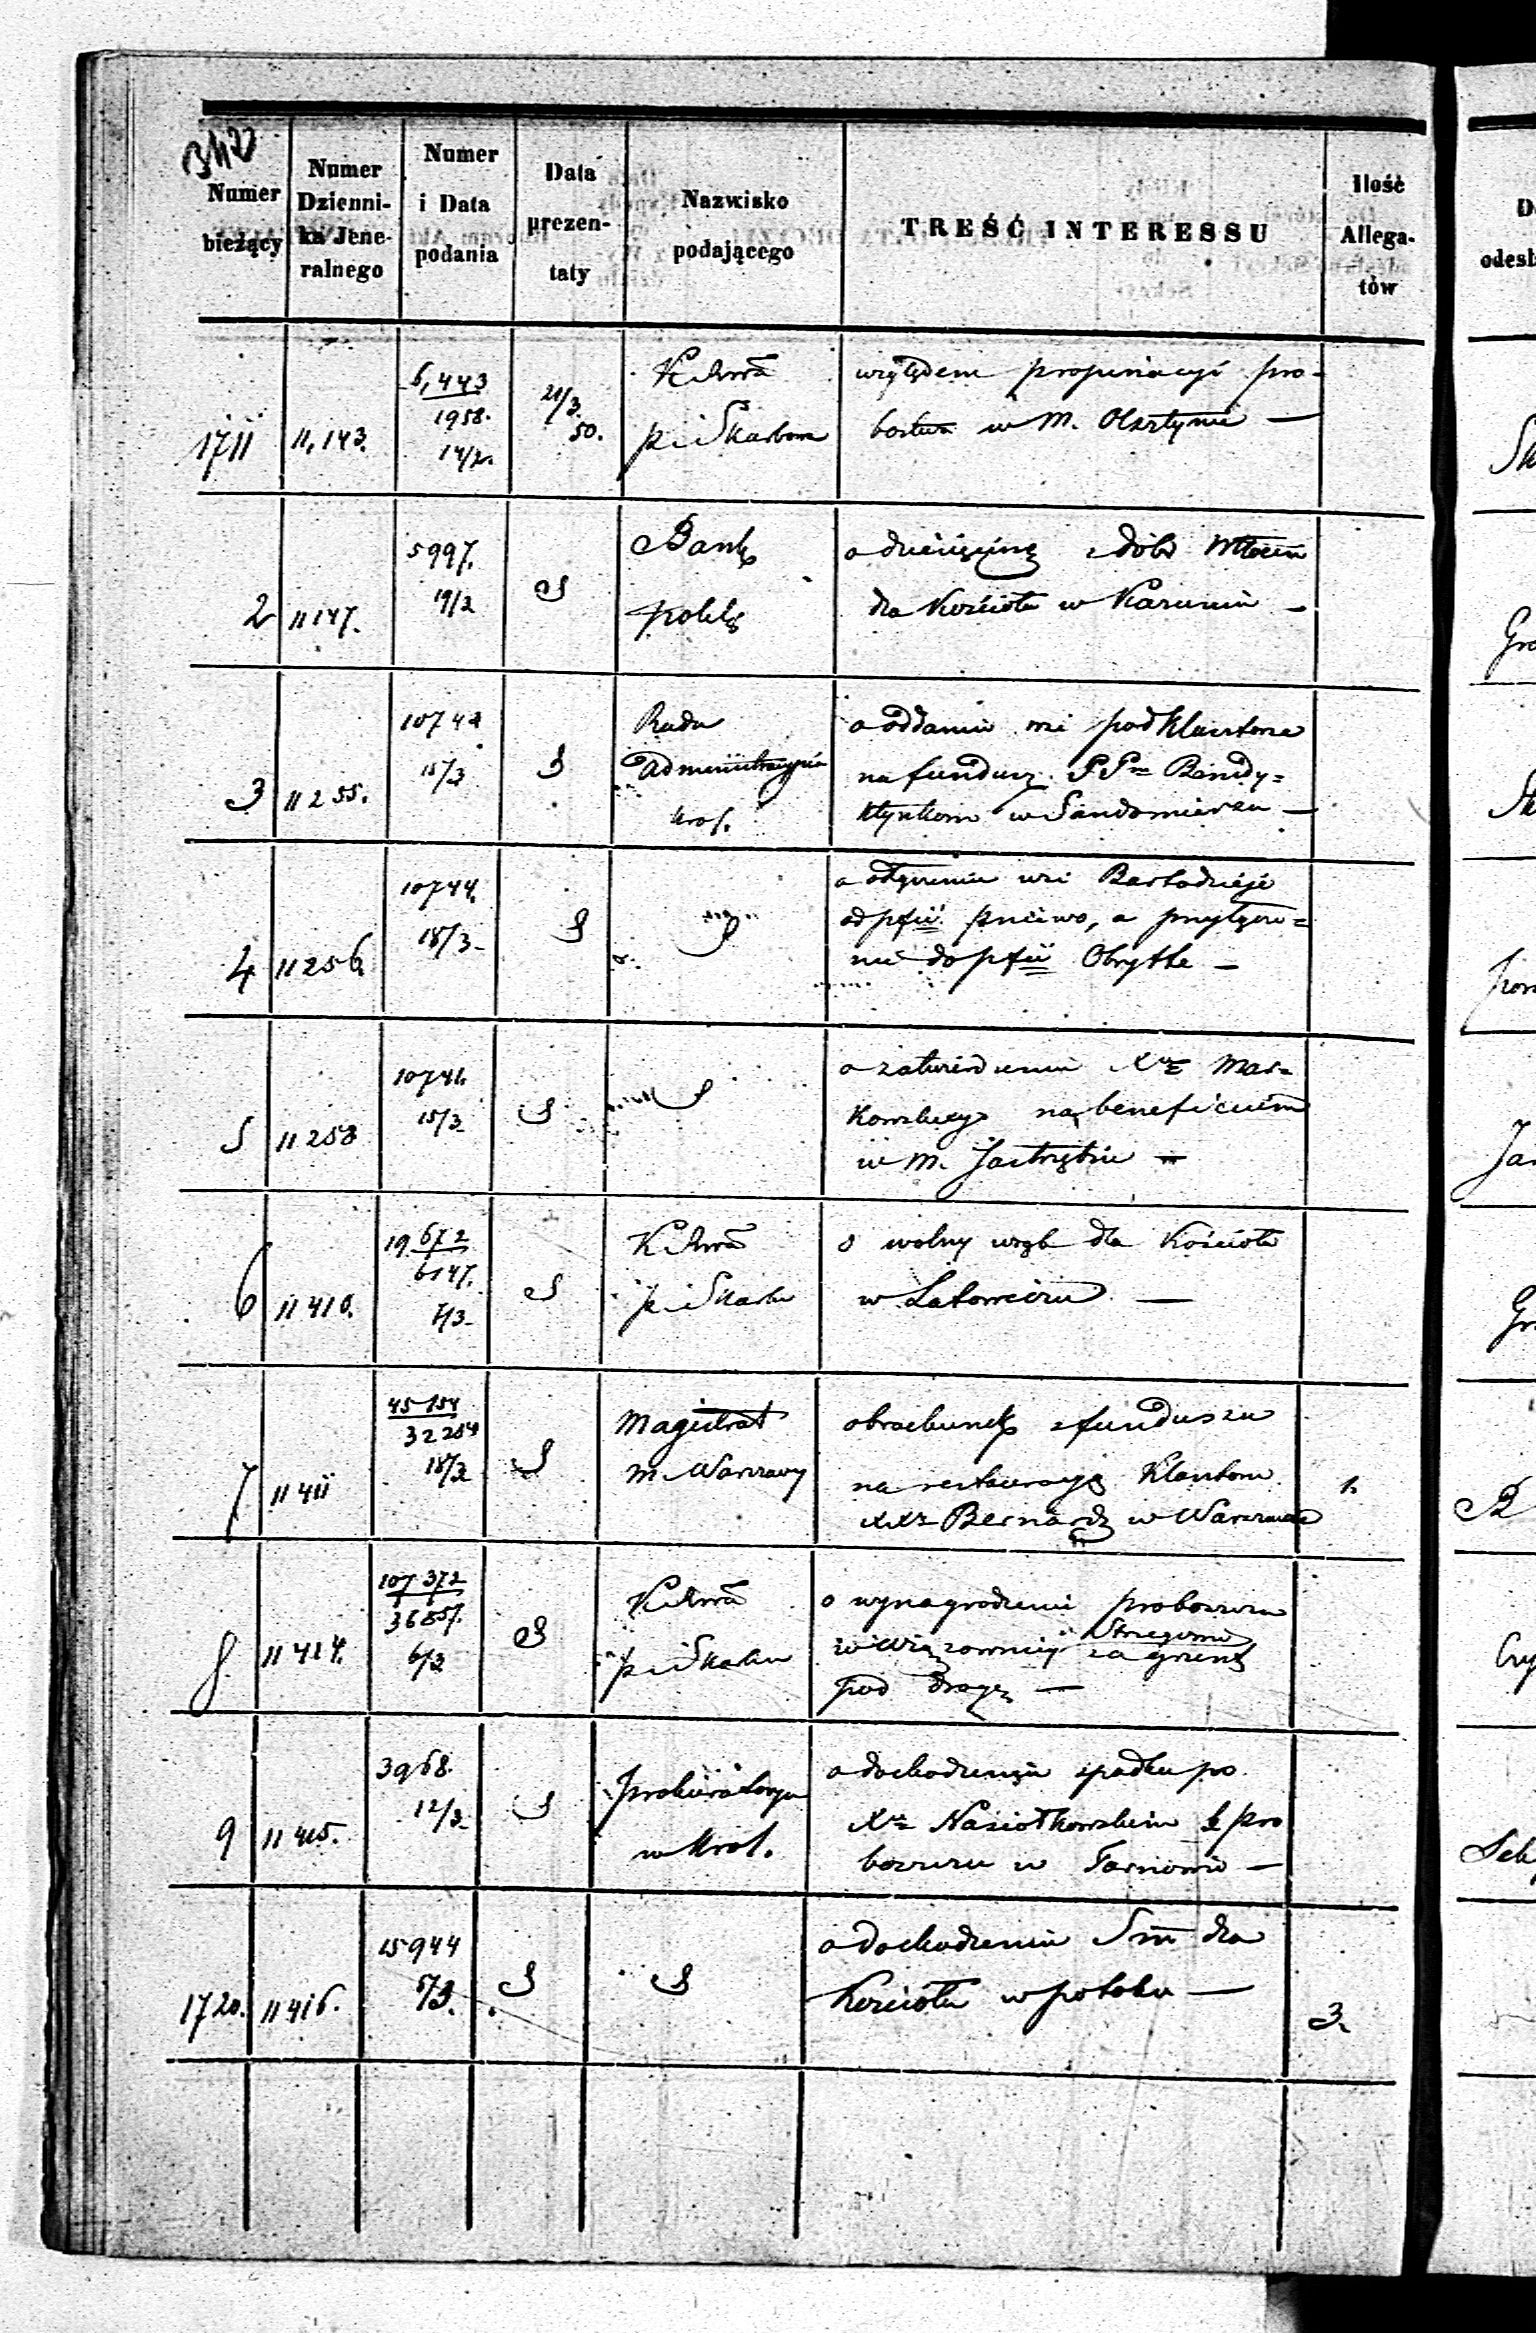 342
Numer bieżący
Numer Dzienni- ka Jene- ralnego
Numer i Data podania
Data prezen- taty
Nazwisko podającego
TREŚĆ INTERESSU
Ilość Allega- tów
1711
11,143.
1958.
14/2.
21/3.
50.
względem propinacyi pro-
bostwa w M. Olsztynie —
2
11147.
5997.
19/2
Bank
polski
o dziesięcinę z dóbr
dla Kościoła w —
3
11255.
15/3
Rada
Administracyjna
Król.
o oddanie wsi pod Klasztorze
na fundusz PP. Benedy=
ktynkom w Sandomierzu —
4
11256
10744.
18/3
o odłączenie wsi Bartodzieje
od pfii pniewo, a przyłącze=
nie do pfii Obrytte —
5
11258
10741.
15/3
o zatwierdzenie Xa Mar=
kowskiego na beneficium
w M. Jastrzębiu —
6
11410.
19 672
6147.
7/3
o wolny wrąb dla Kościoła
w Latowiczu —
7
11411
45 154
32254
18/3
Magistrat
m. Warszawy
obrachunek z funduszu
na restauracyę Klasztoru
XXz Bernardz w Warszawie
1.
8
11414.
107 372
36857.
6/3
o wynagrodzenie proboszcza
w Wiązownicy za grunt
pod drogę —
9
11415.
3968.
12/3
prokuratorya
w Król.
o dochodzeniu spadku po
Xu Nasiołkowskim pro
boszczu w Tarnowie —
1720.
11416.
15944
o dochodzeniu Sm dla
Kościoła w potoku —
3.